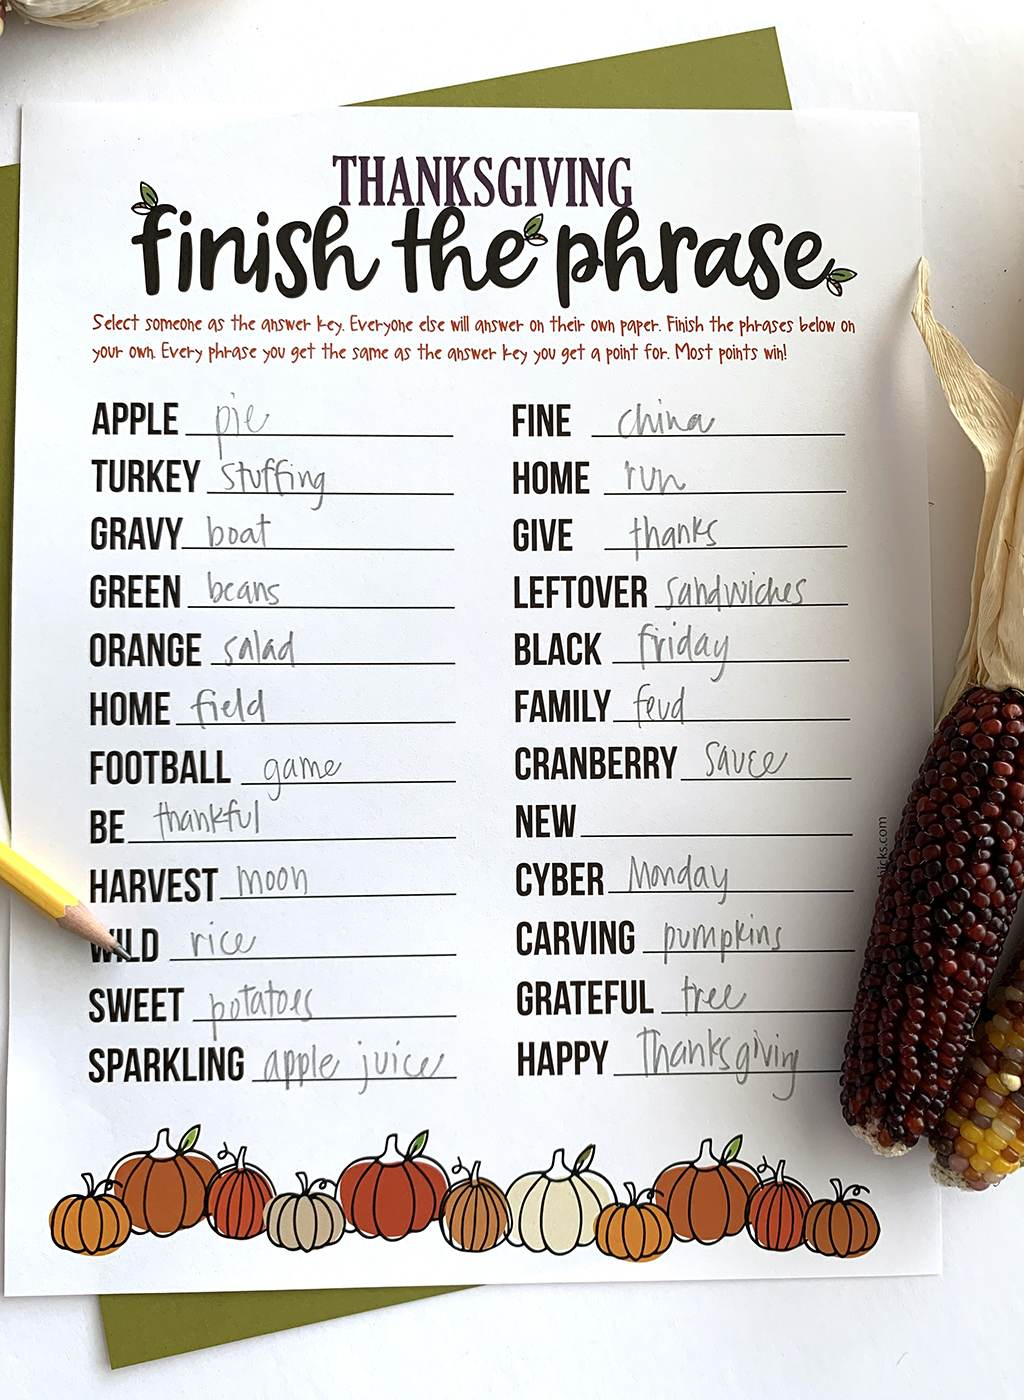 THANKSGIVING
finish the phrase
Select someone as the answer key. Everyone else will answer on their own paper. Finish the phrases below on
your own. Every phrase you get the same as the answer key you get a point for. Most points win!
APPLE pie
TURKEY stuffing
GRAVY boat
GREEN beans
ORANGE salad
HOME field
FOOTBALL game
BE thankful
HARVEST moon
WILD rice
SWEET potatoes
SPARKLING apple juice
FINE china
HOME run
GIVE thanks
LEFTOVER sandwiches
BLACK friday
FAMILY feud
CRANBERRY sauce
NEW
CYBER Monday
CARVING pumpkins
GRATEFUL tree
HAPPY Thanksgiving